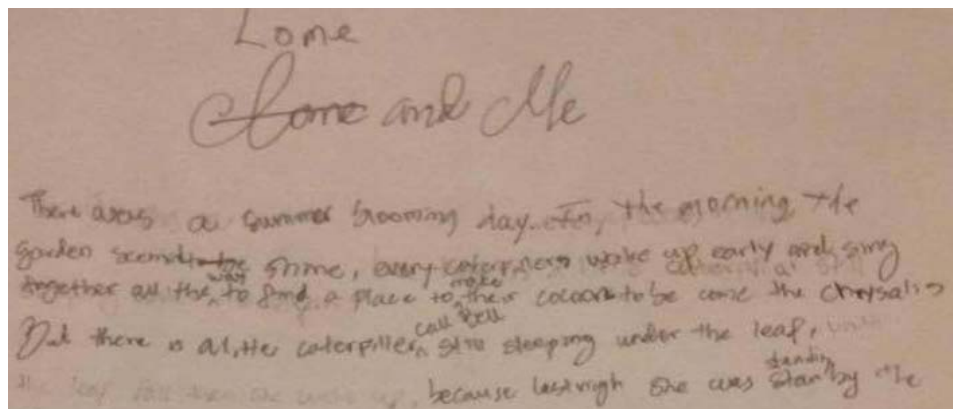 Lome
and Me
There was a summer brooming day. In, the morning, the
garden seemd shine, every caterpillers wake up early and sing
together all the way to find a place to make their cocoon to be come the chrysalis
But there is a litte caterpiller call Bell still sleeping under the leaf,
because last nigh she was standing by the